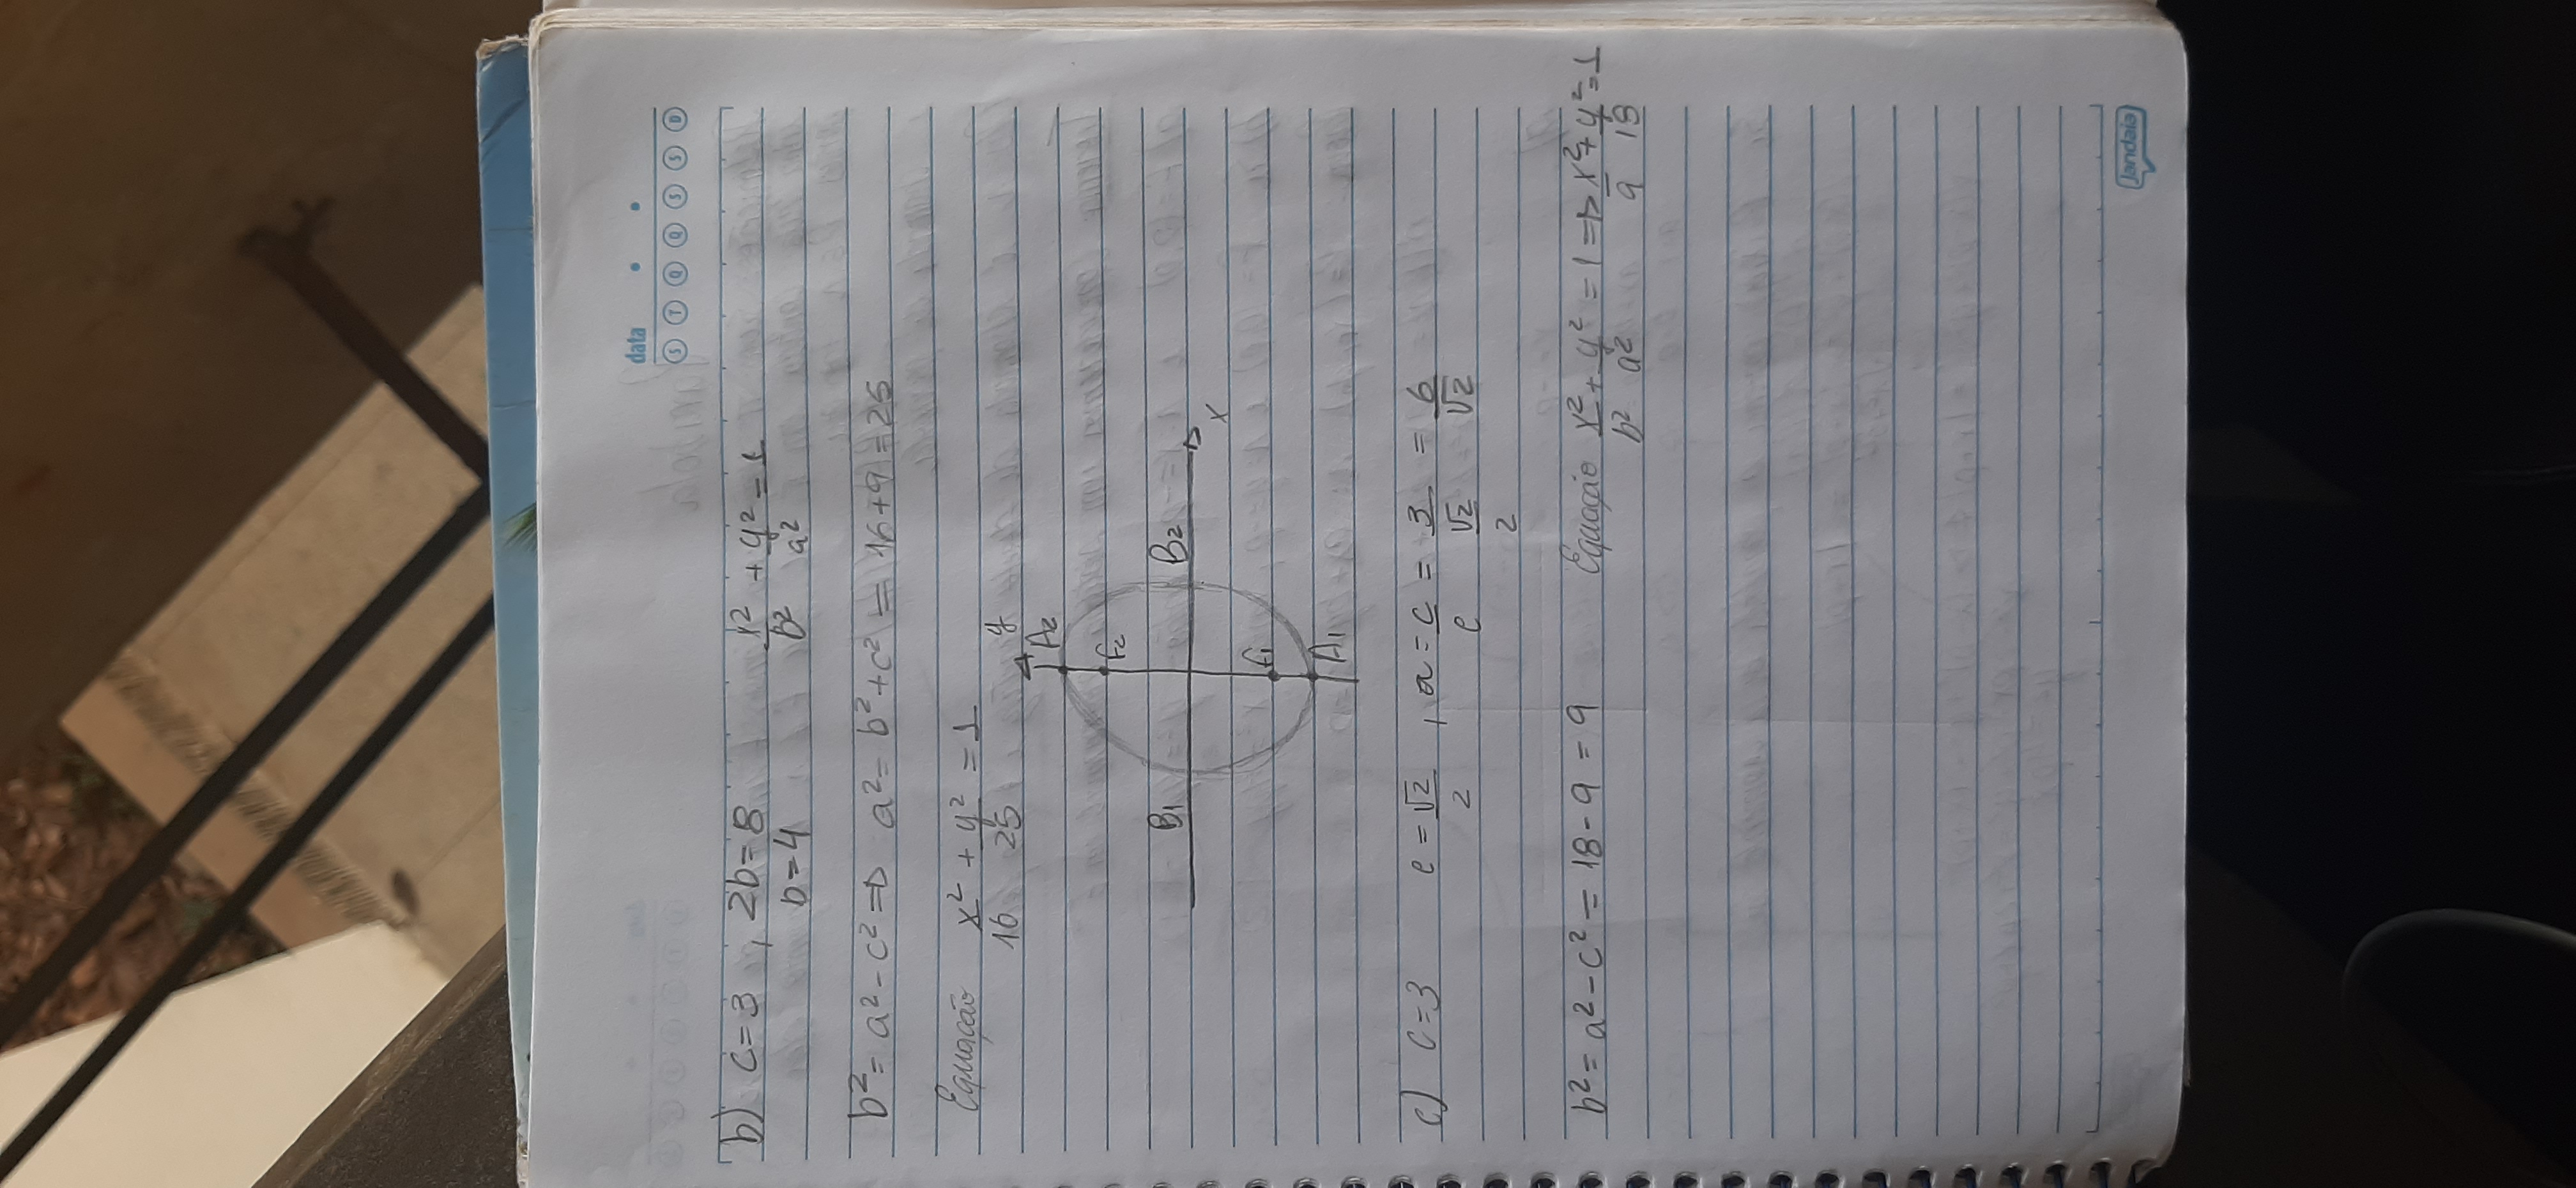 data
S T Q Q S S D
b) c=3 , 2b=8 x²/b² + y²/a² = 1
b=4
b² = a² - c² => a² = b² + c² = 16+9 = 25
Equação x²/16 + y²/25 = 1
y
A2
F2
B1 B2
x
F1
A1
c) c=3 e = √2/2 , a = c/e = 3/(√2/2) = 6/√2
b² = a² - c² = 18 - 9 = 9 Equação x²/b² + y²/a² = 1 => x²/9 + y²/18 = 1
Jandaia